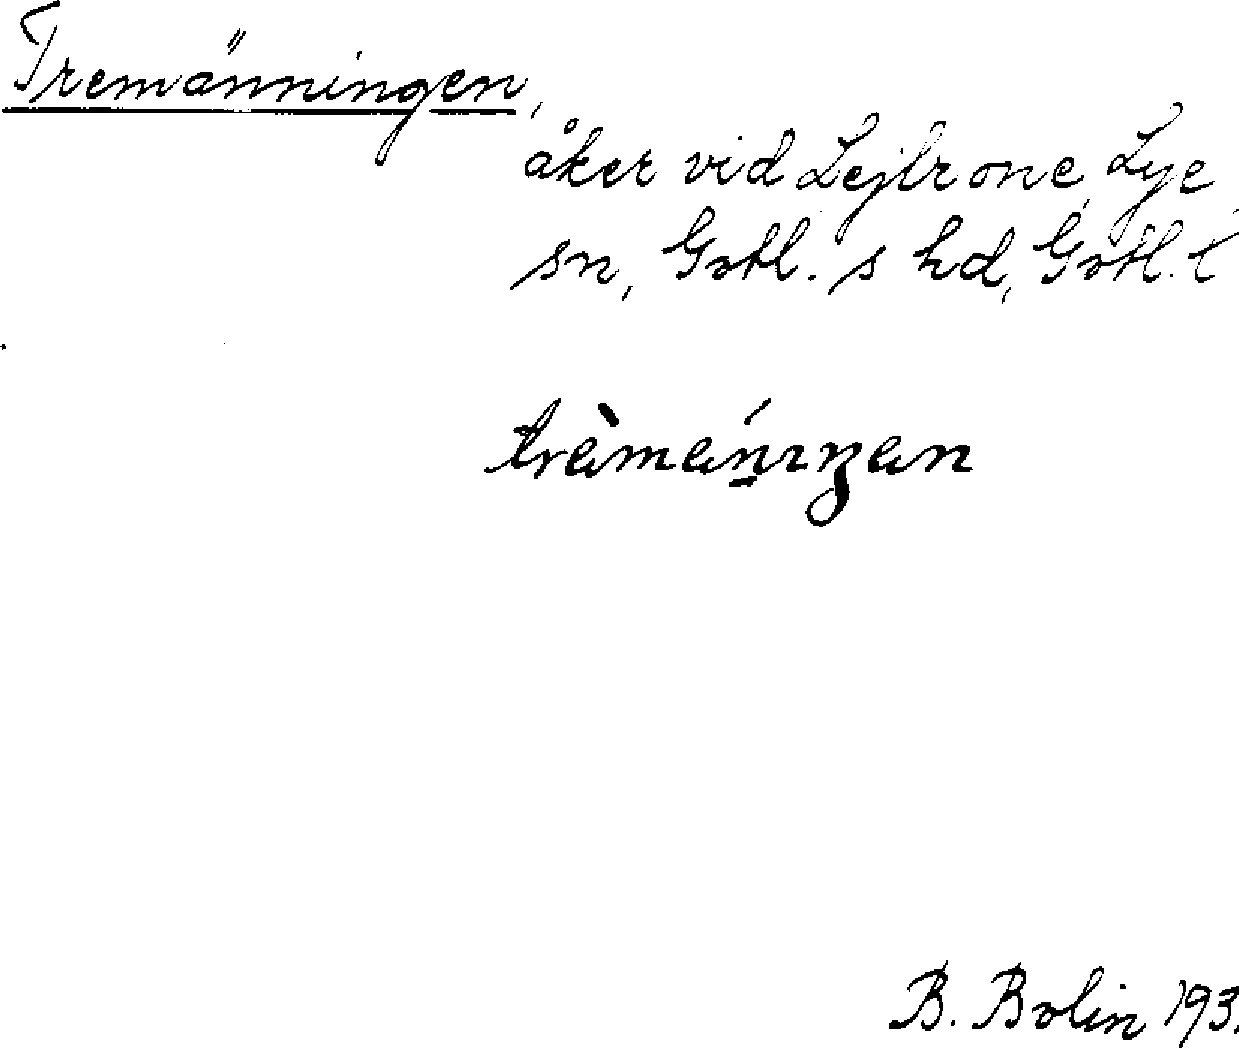 Tremänningen,
åker vid Lejlrone, Lye
sn, Gotl. s hd, Gotl. l
B. Bolin 193